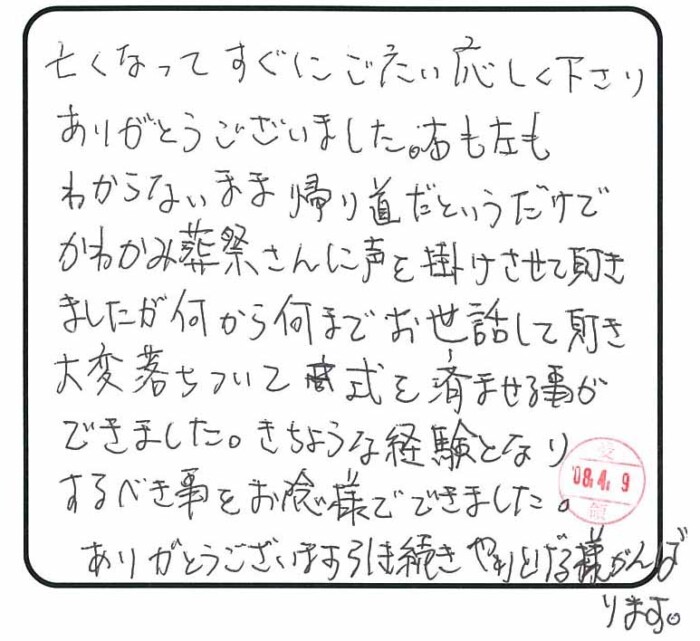 亡くなってすぐにごたい応しく下さり
ありがとうございました。右も左も
わからないまま帰り道だというだけで
かわかみ葬祭さんに声を掛けさせて頂き
ましたが何から何までお世話して頂き
大変落ちついて式を済ませる事が
できました。きちょうな経験となり
するべき事をお陰様でできました。
ありがとうございます引き続きやりとげる様がんば
ります。
受
'08.4.9
領